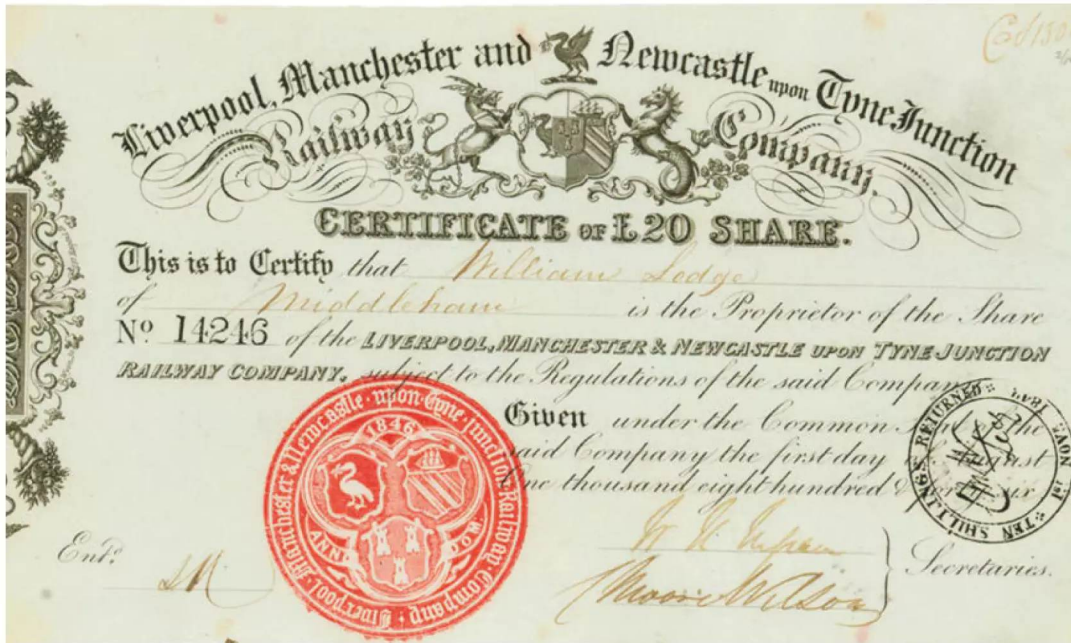 Liverpool, Manchester and Newcastle upon Tyne Junction
Railway Company.
CERTIFICATE OF £20 SHARE.
This is to Certify that William Lodge
of Middleham is the Proprietor of the Share
No. 14246 of the LIVERPOOL, MANCHESTER & NEWCASTLE UPON TYNE JUNCTION
RAILWAY COMPANY, subject to the Regulations of the said Company
Given under the Common the
said Company the first day August
One thousand eight hundred &
1846
ANNO DOM.
Liverpool, Manchester & Newcastle upon Tyne Junction Railway Company
TEN SHILLINGS RETURNED
Entd.
Moore Wilson
Secretaries.